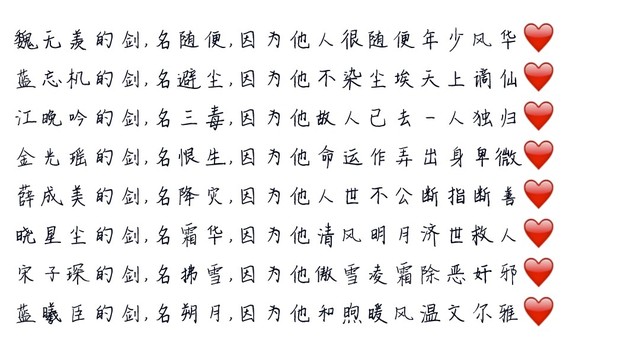 魏无羡的剑,名随便,因为他人很随便年少风华❤️
蓝忘机的剑,名避尘,因为他不染尘埃天上谪仙❤️
江晚吟的剑,名三毒,因为他故人已去一人独归❤️
金光瑶的剑,名恨生,因为他命运作弄出身卑微❤️
薛成美的剑,名降灾,因为他人世不公断指断善❤️
晓星尘的剑,名霜华,因为他清风明月济世救人❤️
宋子琛的剑,名拂雪,因为他傲雪凌霜除恶奸邪❤️
蓝曦臣的剑,名朔月,因为他和煦暖风温文尔雅❤️